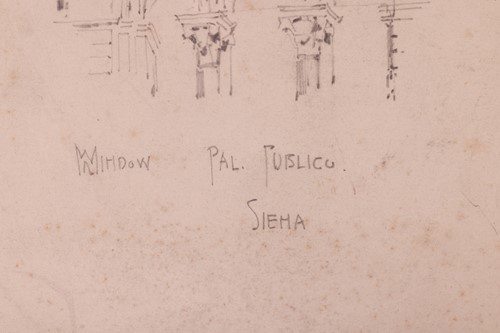 WINDOW PAL. PUBLICO.
SIENA